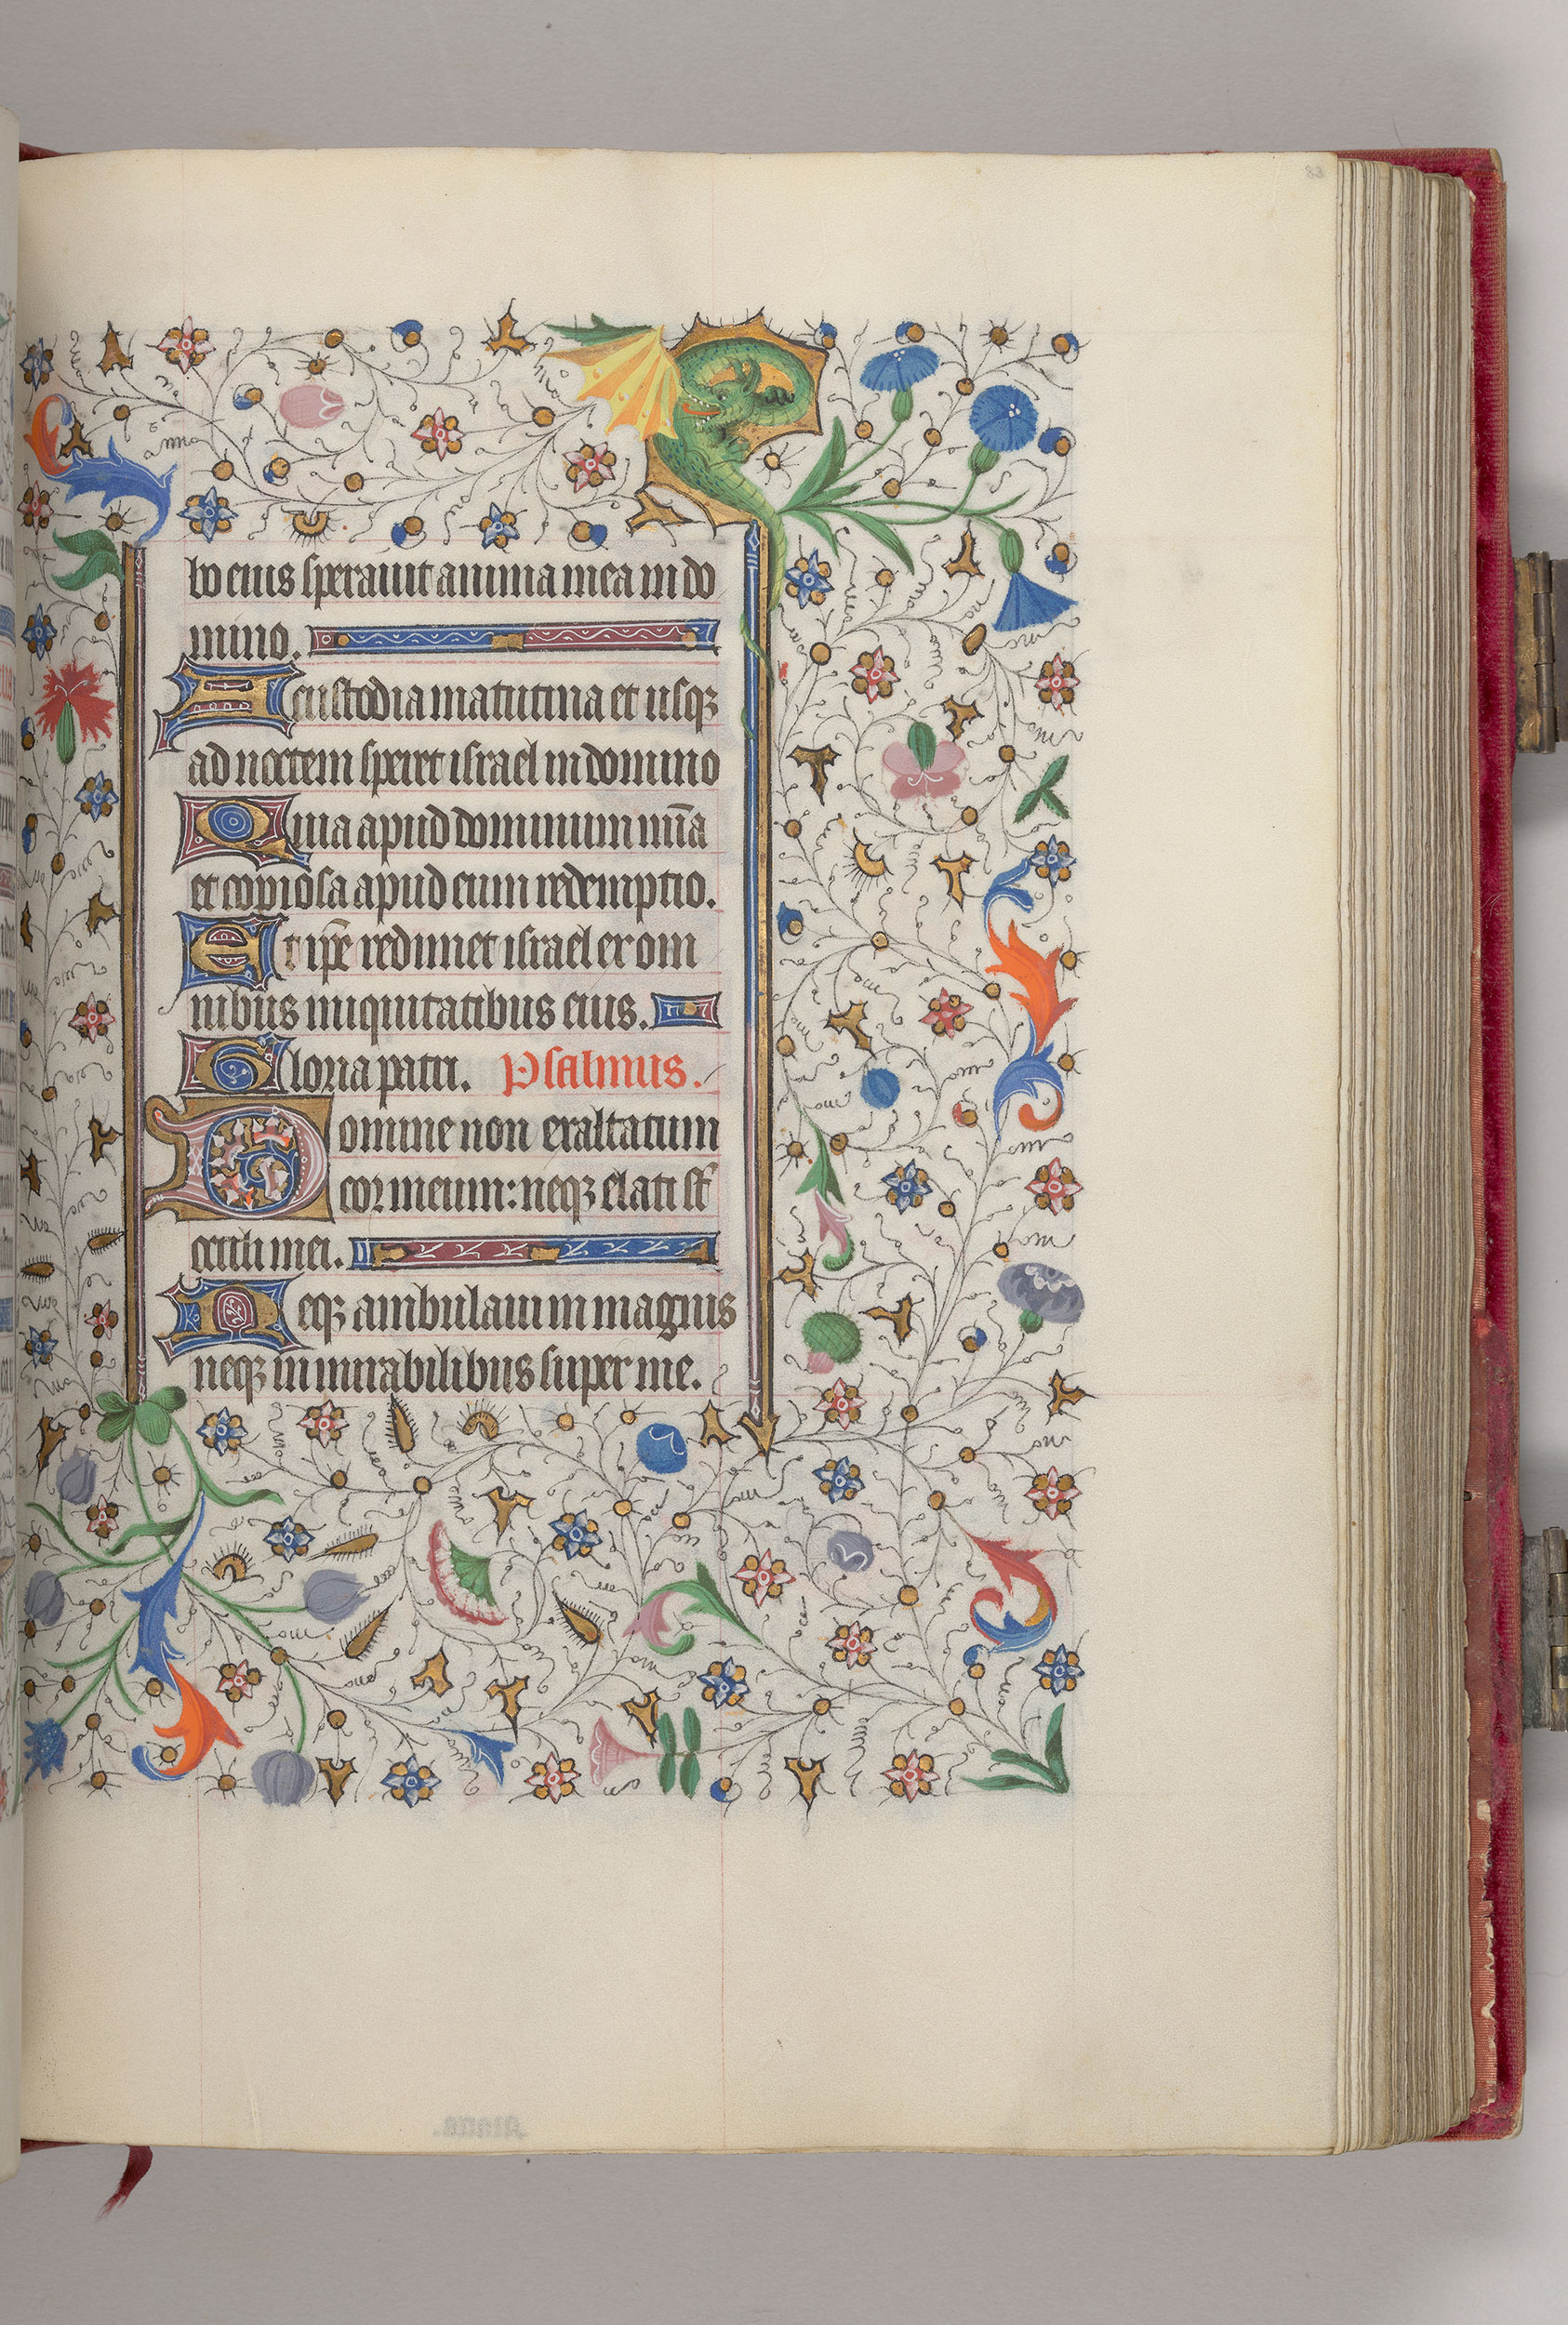 83
bo eius speravit anima mea in do
mino.
A custodia matutina et usqꝫ
ad noctem speret israel in domino
Quia apud dominum mīa
et copiosa apud eum redemptio.
Et ip̄e redimet israel ex om
nibus iniquitatibus eius.
Gloria patri. Psalmus.
Domine non exaltatum
cor meum: neqꝫ elati st̄
oculi mei.
Neqꝫ ambulavi in magnis
neqꝫ in mirabilibus super me.